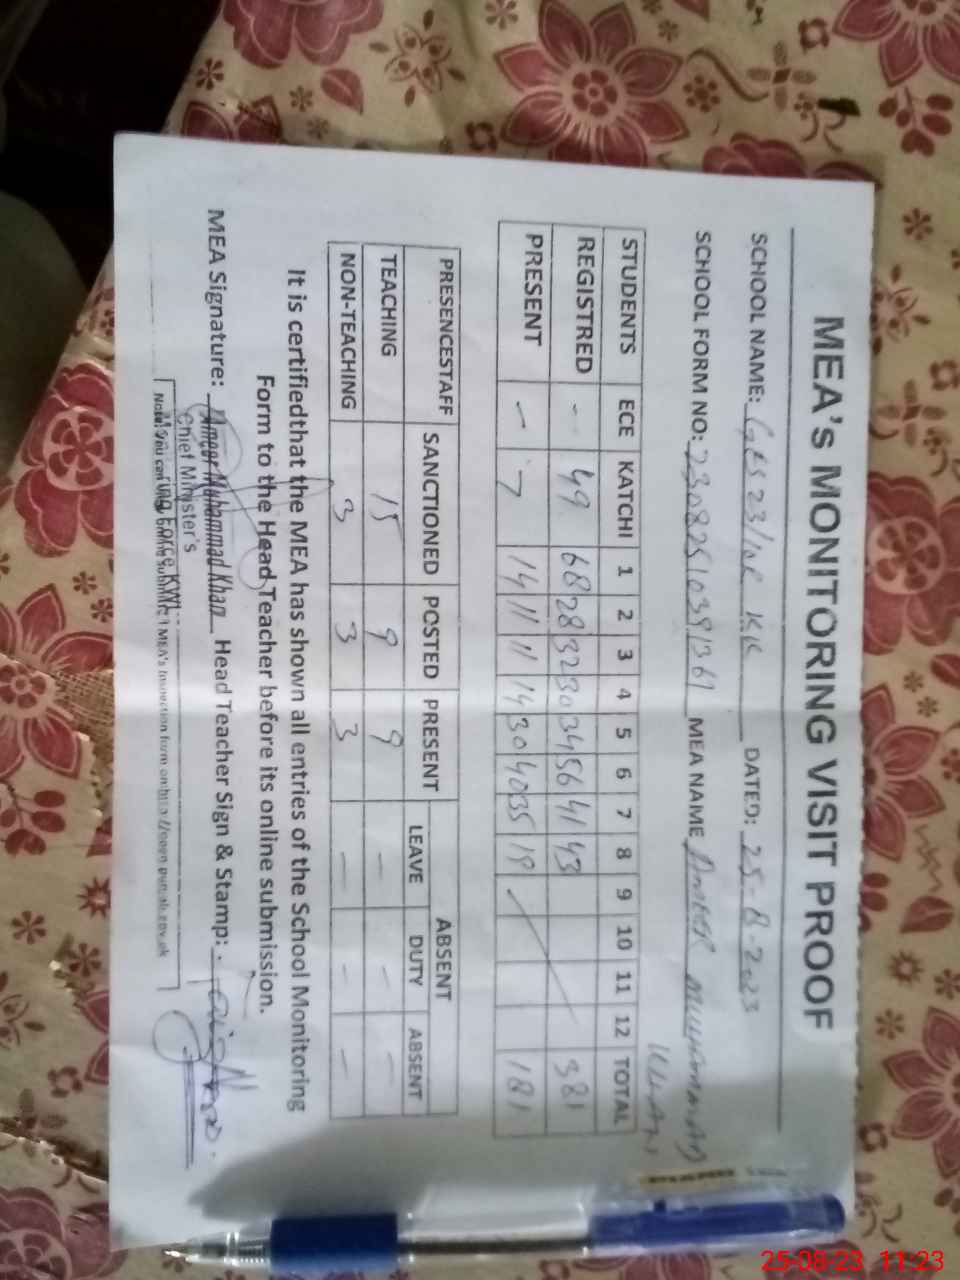 MEA's MONITORING VISIT PROOF
SCHOOL NAME: GES 23/10R KK DATED: 25-8-2023
SCHOOL FORM NO: MEA NAME AMEER MUHAMMAD
KHAN
STUDENTS ECE KATCHI 1 2 3 4 5 6 7 8 9 10 11 12 TOTAL
REGISTRED - 49 68 28 32 30 34 56 41 43 381
PRESENT - 7 14 11 11 14 30 40 35 19 181
PRESENCESTAFF SANCTIONED POSTED PRESENT ABSENT
LEAVE DUTY ABSENT
TEACHING 15 9 9 - - -
NON-TEACHING 3 3 3 - - -
It is certifiedthat the MEA has shown all entries of the School Monitoring
Form to the Head Teacher before its online submission.
MEA Signature: Ameer Muhammad Khan Head Teacher Sign & Stamp:
Chief Minister's
Monitoring Force KWL
Note: You can MEA's Inspection form on
25-08-23 11:23